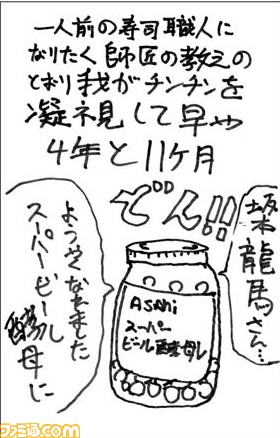 一人前の寿司職人に
なりたく師匠の教えの
とおり我がチンチンを
凝視して早や
4年と11ヶ月
どん!!
坂本龍馬さん…
ようやくなれました
スーパービール
酵母に
ASAhi
スーパー
ビール酵母
ファミ通com